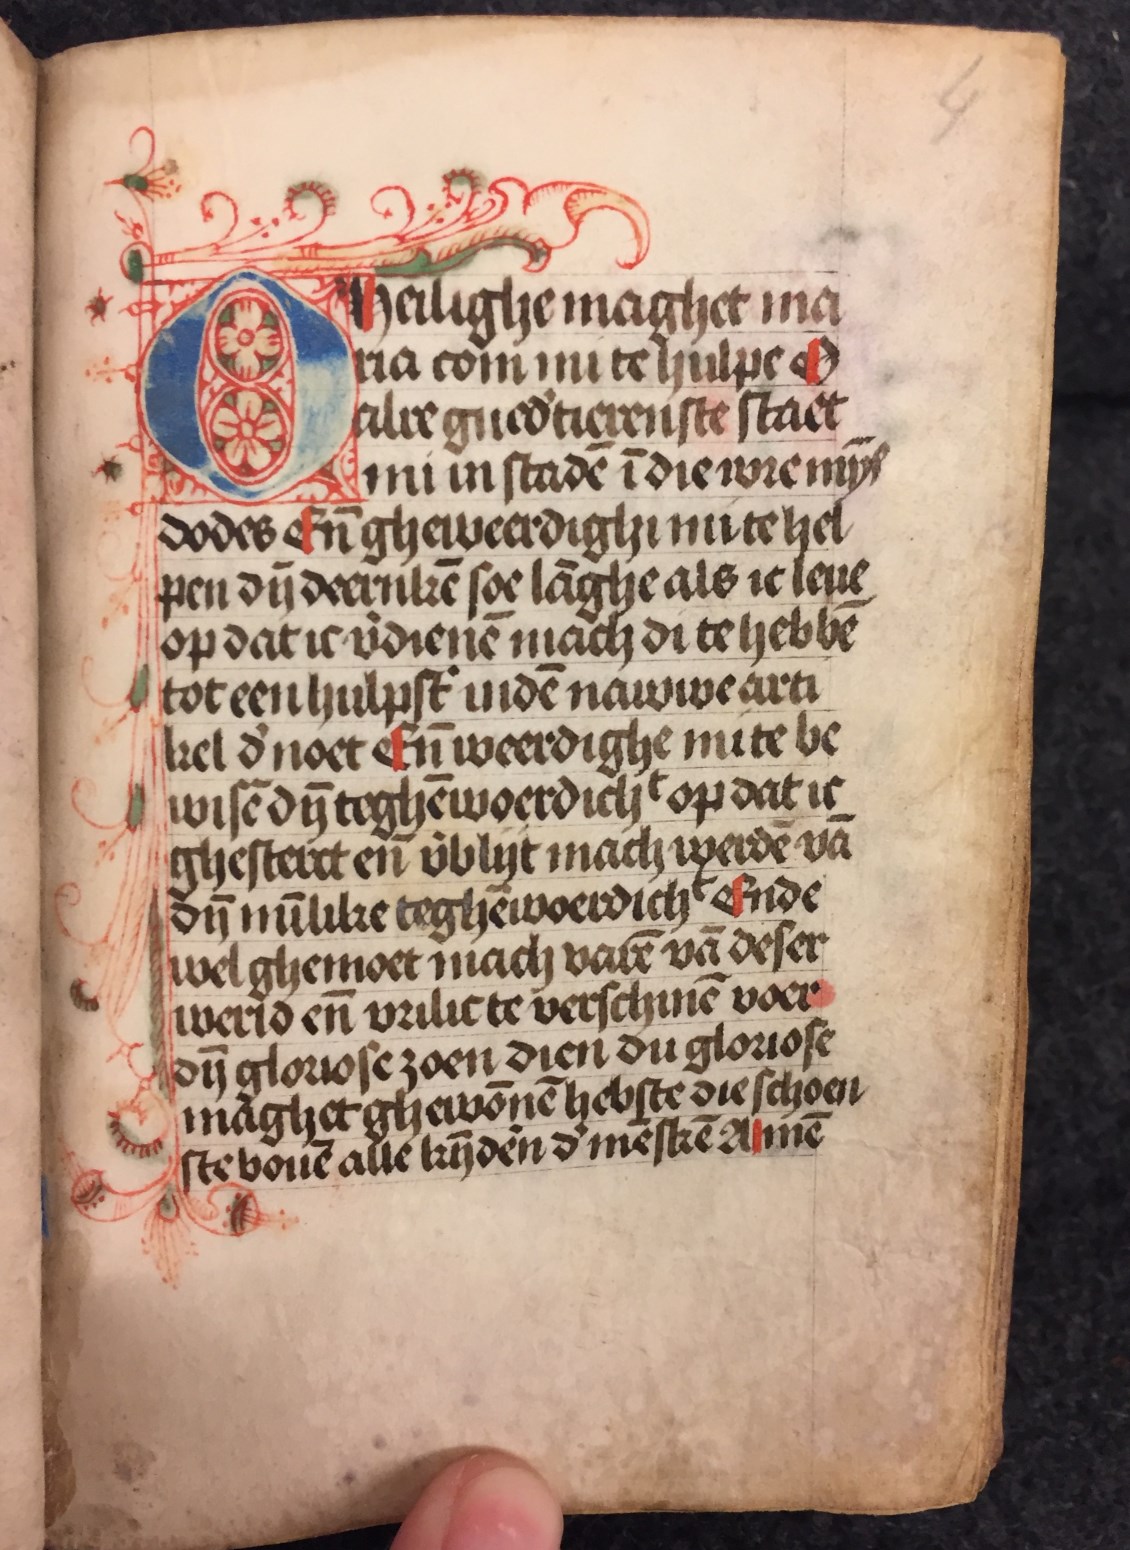 4
O heilighe maghet ma
ria com mi te hulpe O
alre guedʼtierenste staet
mi in stadē ī die wre mijs
dodes Eñ gheweerdighi mi te hel
pen dij̄ deernkē soe lāghe als ic leue
op dat ic v̓dienē mach di te hebbē
tot een hulpstʼ indē nauwe arti
kel dʼ noet Eñ weerdighe mi te be
wisē dij̄ teghēwoerdichᵗ op dat ic
ghesterct eñ v̓blijt mach werdē vā
dij̄ mīlike teghēwoerdichᵗ Ende
wel ghemoet mach varē vā deser
werld eñ vrilic te verschinē voer
dij̄ gloriose zoen dien du gloriose
maghet ghewōnē hebste die schoen
ste bouē alle kīj̄dēn dʼ mēskē Amē